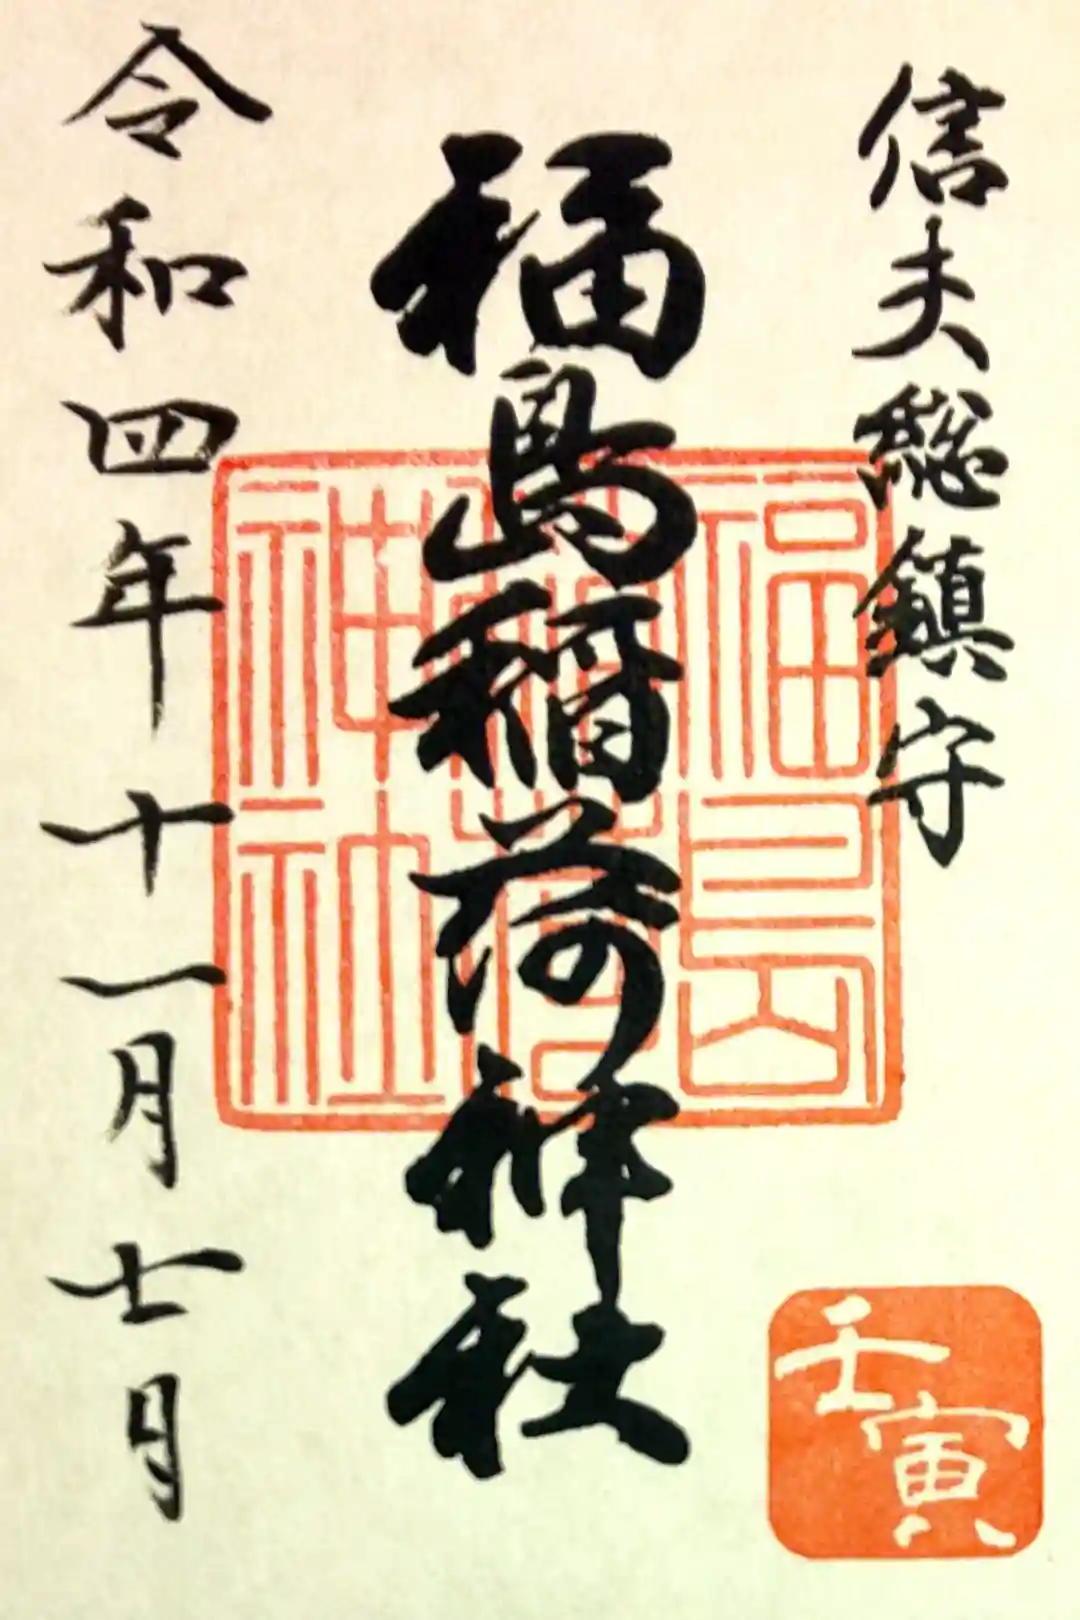 信夫総鎮守
福島稲荷神社
令和四年十一月七日
福島
稲荷
神社
壬寅